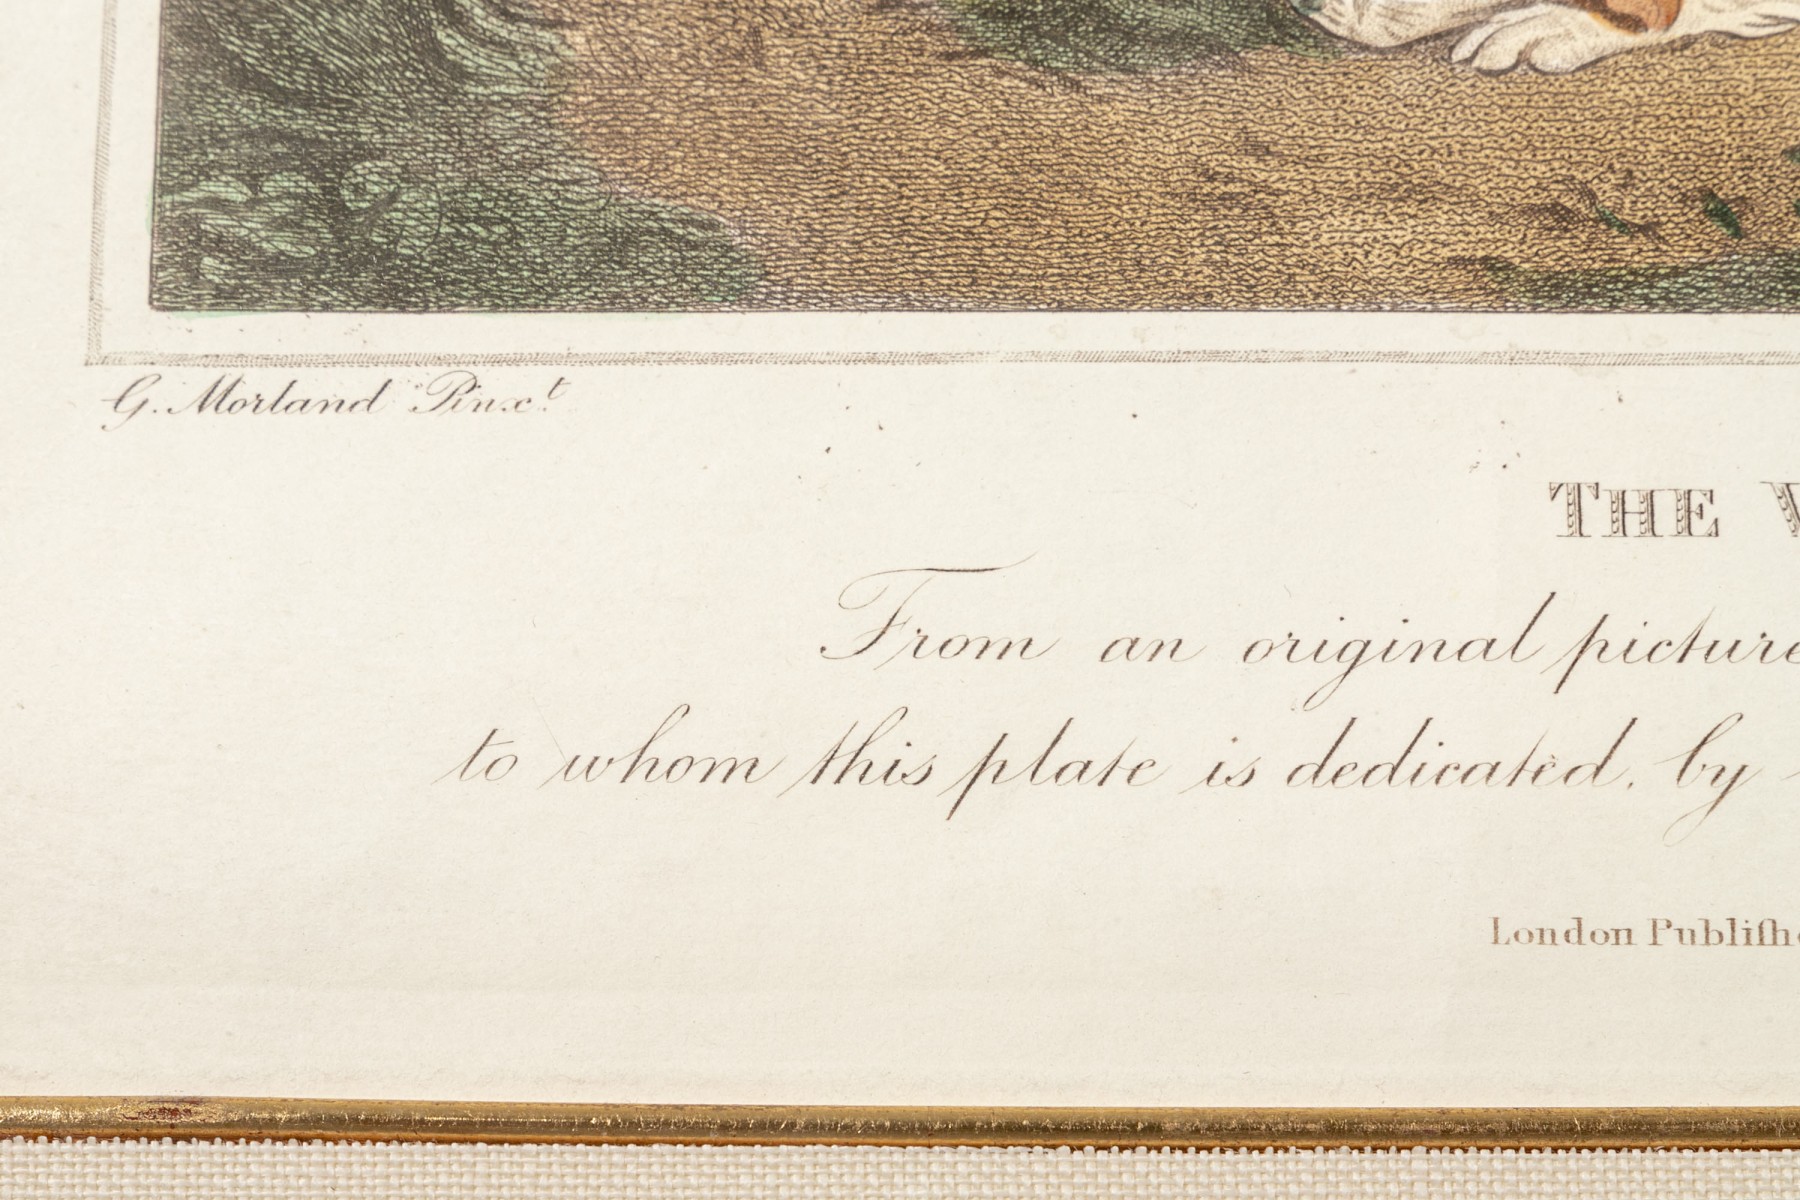 G. Morland Pinxt.
THE
From an original picture
to whom this plate is dedicated, by
London Publiſhe